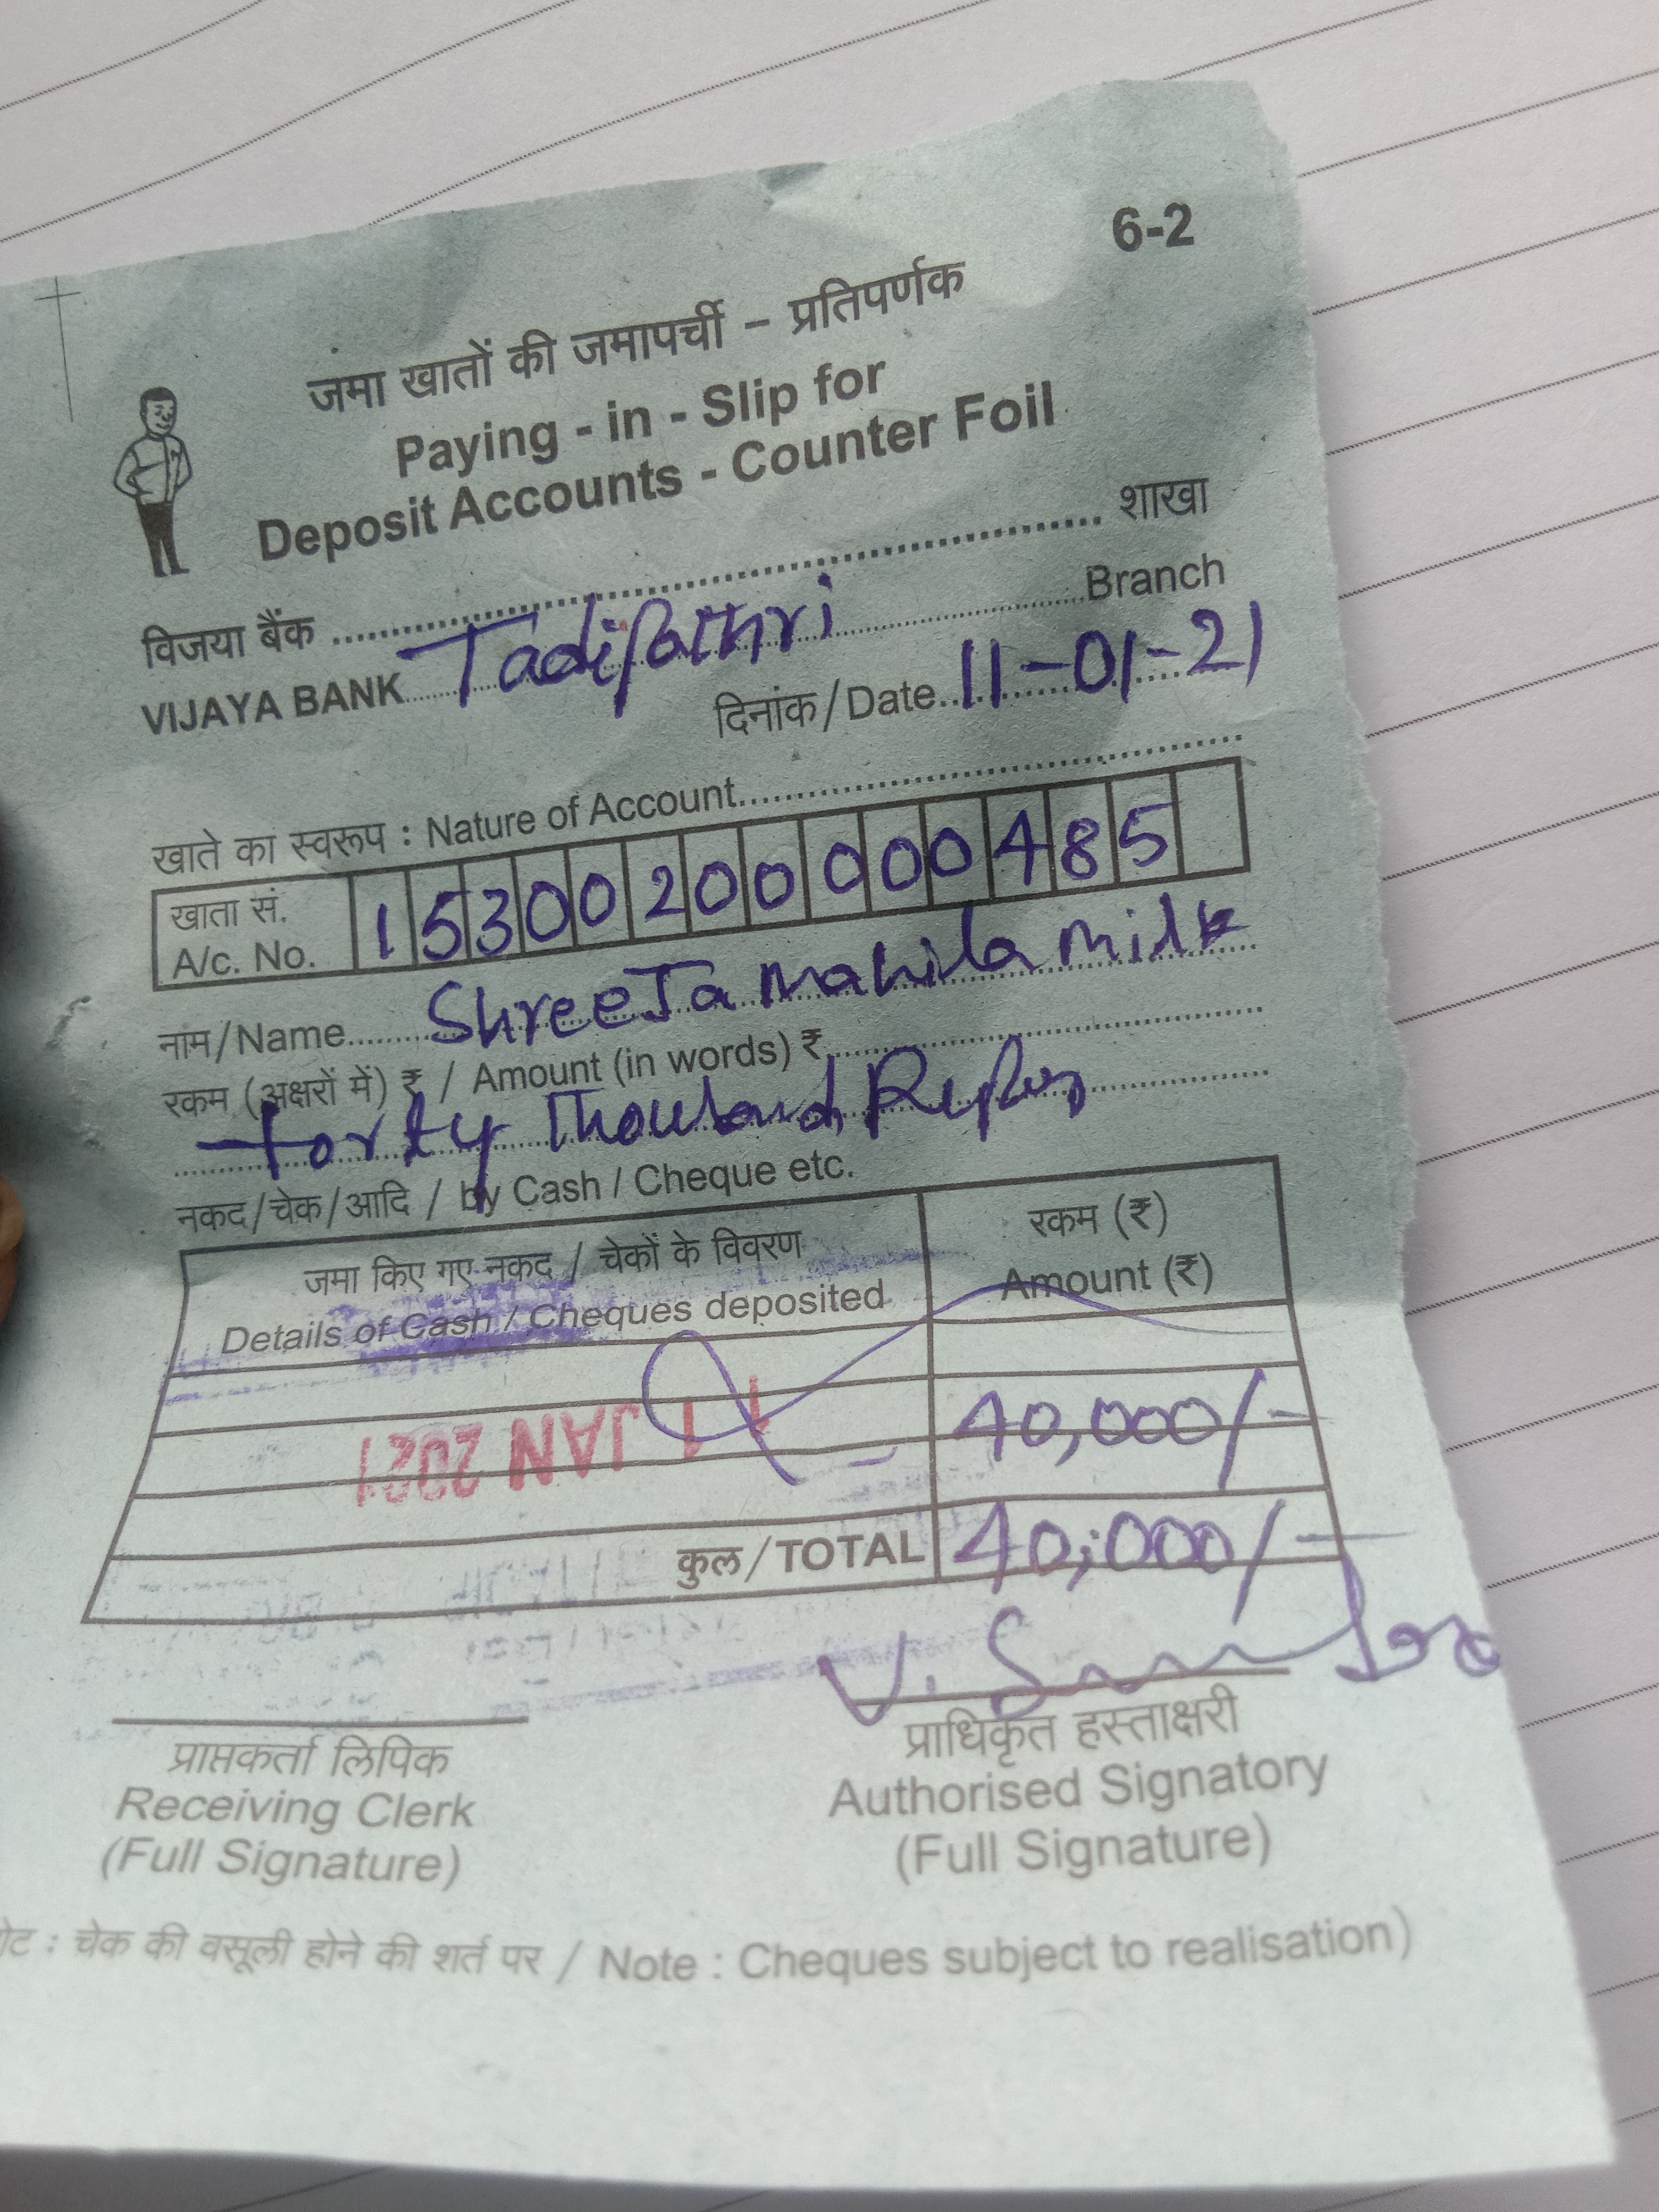 6-2
जमा खातों की जमापर्ची – प्रतिपर्णक
Paying - in - Slip for
Deposit Accounts - Counter Foil
विजया बैंक ........ शाखा
VIJAYA BANK Tadipathri Branch
दिनांक/Date 11-01-21
खाते का स्वरूप : Nature of Account
खाता सं. A/c. No. 153002000000485
नाम/Name ShreeJa mahila milk
रकम (अक्षरों में) ₹ / Amount (in words) ₹
forty Thousand Rupees
नकद/चेक/आदि / by Cash / Cheque etc.
जमा किए गए नकद / चेकों के विवरण रकम (₹)
Details of Cash / Cheques deposited Amount (₹)
11 JAN 2021
40,000/-
कुल/TOTAL 40,000/-
प्राप्तकर्ता लिपिक प्राधिकृत हस्ताक्षरी
Receiving Clerk Authorised Signatory
(Full Signature) (Full Signature)
चेक की वसूली होने की शर्त पर / Note : Cheques subject to realisation)